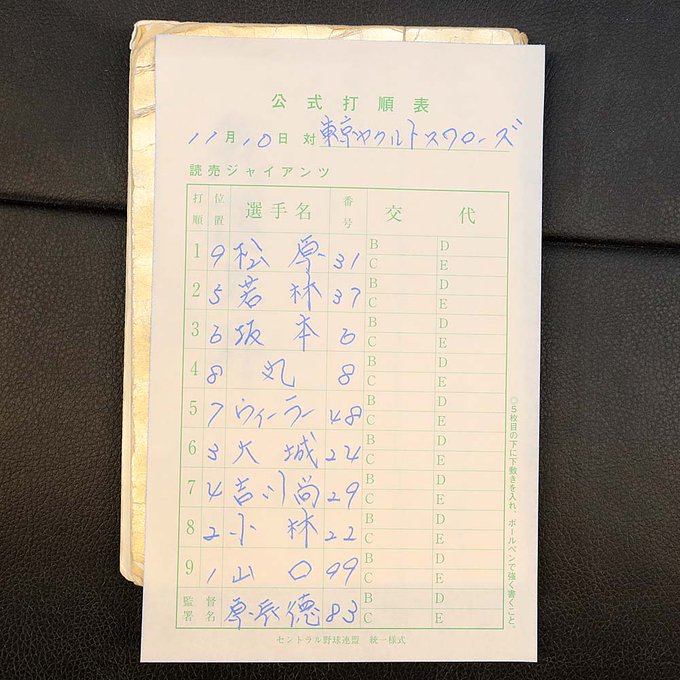 公式打順表
11月10日 対 東京ヤクルトスワローズ
読売ジャイアンツ
打順 位置 選手名 番号 交代
1 9 松原 31 B D C E
2 5 若林 37 B D C E
3 6 坂本 6 B D C E
4 8 丸 8 B D C E
5 7 ウィーラー 48 B D C E
6 3 大城 24 B D C E
7 4 吉川尚 29 B D C E
8 2 小林 22 B D C E
9 1 山口 99 B D C E
監督署名 原辰徳 83 B D C E
◎5枚目の下に下敷きを入れ、ボールペンで強く書くこと。
セントラル野球連盟 統一様式